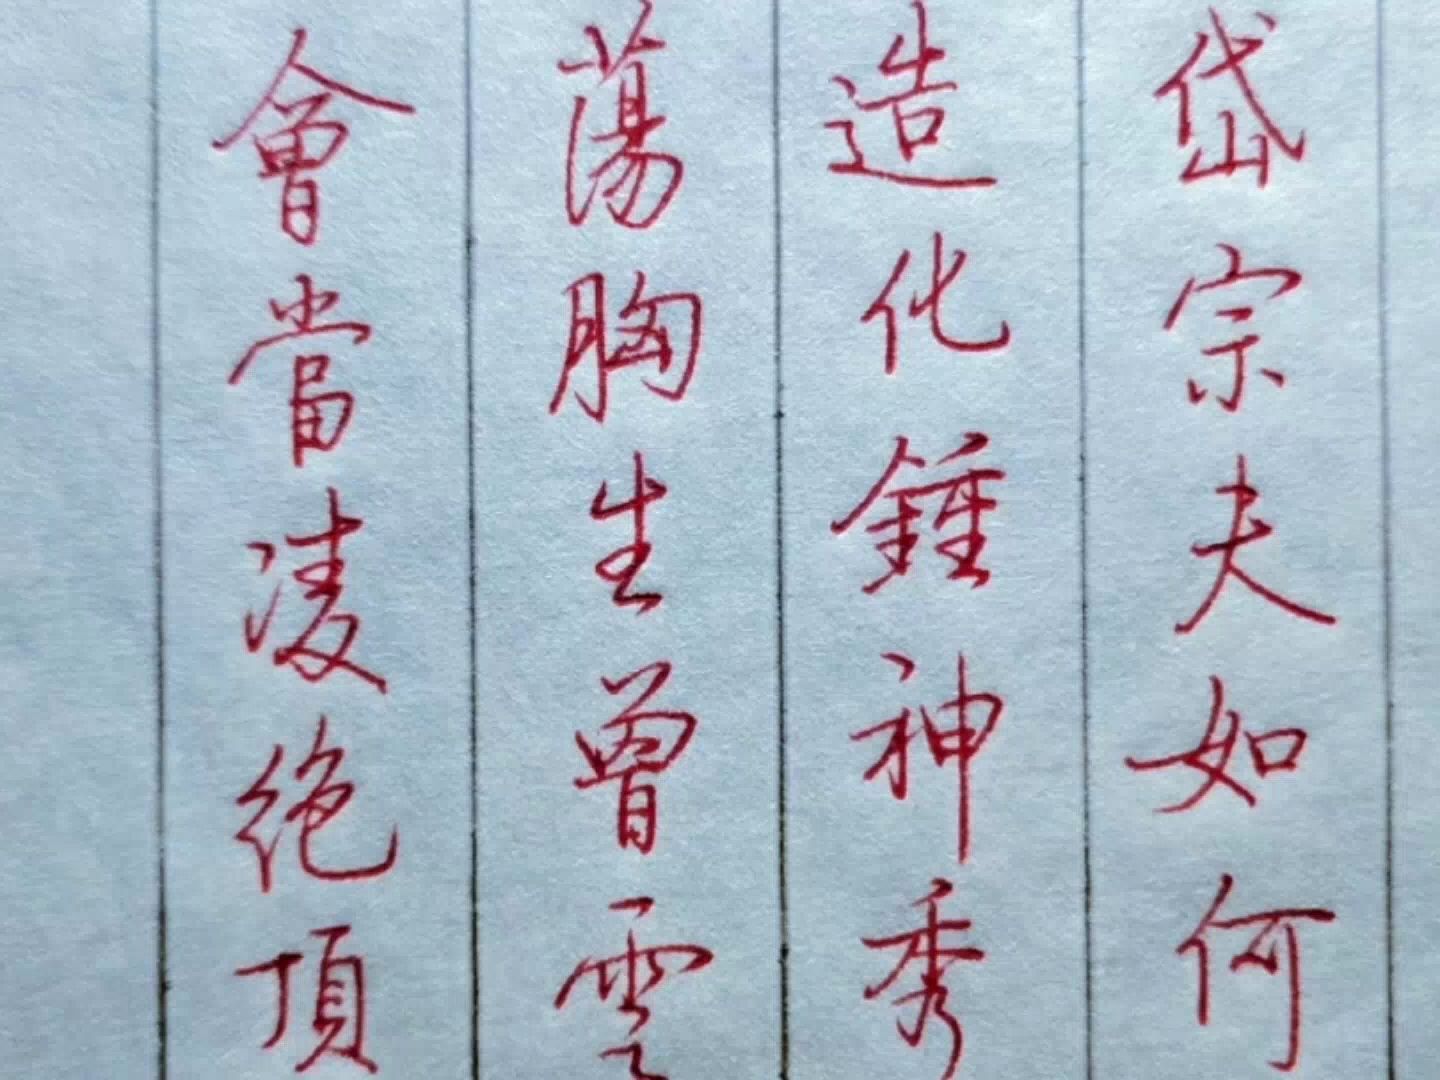 岱宗夫如何
造化鍾神秀
蕩胸生曾雲
會當凌絶頂